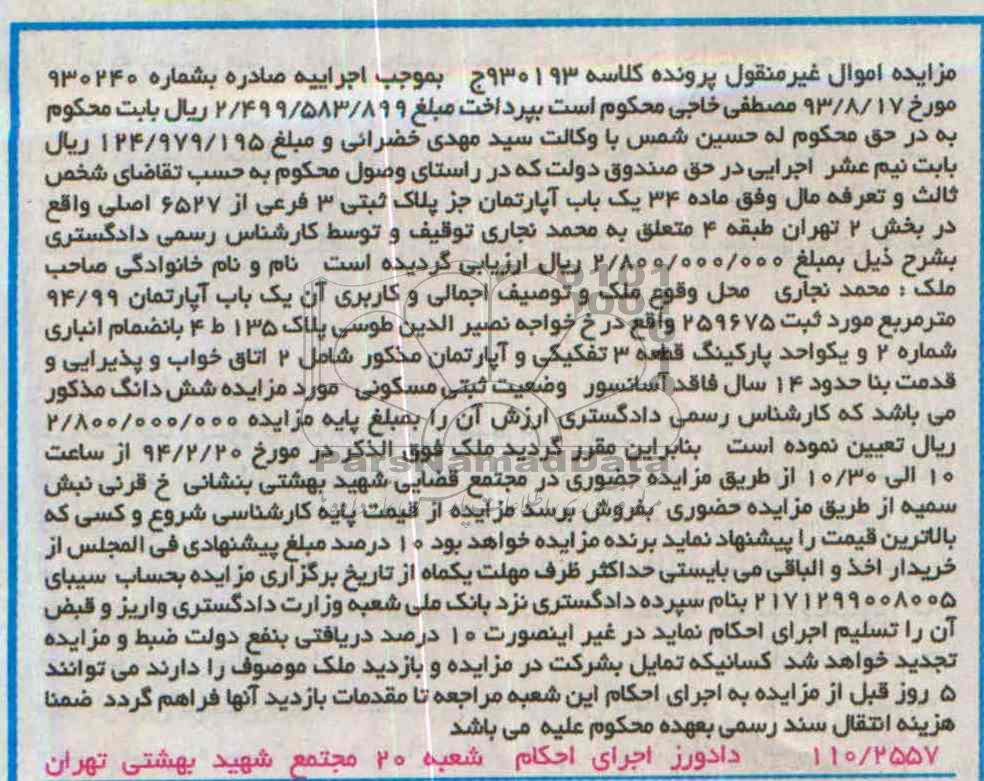 مزایده اموال غیرمنقول پرونده کلاسه ۹۳۰۱۹۳ج بموجب اجراییه صادره بشماره ۹۳۰۲۴۰
مورخ ۹۳/۸/۱۷ مصطفی خاجی محکوم است بپرداخت مبلغ ۲/۴۹۹/۵۸۳/۸۹۹ ریال بابت محکوم
به در حق محکوم له حسین شمس با وکالت سید مهدی خضرائی و مبلغ ۱۲۴/۹۷۹/۱۹۵ ریال
بابت نیم عشر اجرایی در حق صندوق دولت که در راستای وصول محکوم به حسب تقاضای شخص
ثالث و تعرفه مال وفق ماده ۳۴ یک باب آپارتمان جز پلاک ثبتی ۳ فرعی از ۶۵۲۷ اصلی واقع
در بخش ۲ تهران طبقه ۴ متعلق به محمد نجاری توقیف و توسط کارشناس رسمی دادگستری
بشرح ذیل بمبلغ ۲/۸۰۰/۰۰۰/۰۰۰ ریال ارزیابی گردیده است نام و نام خانوادگی صاحب
ملک : محمد نجاری محل وقوع ملک و توصیف اجمالی و کاربری آن یک باب آپارتمان ۹۴/۹۹
مترمربع مورد ثبت ۲۵۹۶۷۵ واقع در خ خواجه نصیر الدین طوسی پلاک ۱۳۵ ط ۴ بانضمام انباری
شماره ۲ و یکواحد پارکینگ قطعه ۳ تفکیکی و آپارتمان مذکور شامل ۲ اتاق خواب و پذیرایی و
قدمت بنا حدود ۱۴ سال فاقد آسانسور وضعیت ثبتی مسکونی مورد مزایده شش دانگ مذکور
می باشد که کارشناس رسمی دادگستری ارزش آن را بمبلغ پایه مزایده ۲/۸۰۰/۰۰۰/۰۰۰
ریال تعیین نموده است بنابراین مقرر گردید ملک فوق الذکر در مورخ ۹۴/۲/۲۰ از ساعت
ParsNamadData
۱۰ الی ۱۰/۳۰ از طریق مزایده حضوری در مجتمع قضایی شهید بهشتی بنشانی خ قرنی نبش
سمیه از طریق مزایده حضوری بفروش برسد مزایده از قیمت پایه کارشناسی شروع و کسی که
بالاترین قیمت را پیشنهاد نماید برنده مزایده خواهد بود ۱۰ درصد مبلغ پیشنهادی فی المجلس از
خریدار اخذ و الباقی می بایستی حداکثر ظرف مهلت یکماه از تاریخ برگزاری مزایده بحساب سیبای
۲۱۷۱۲۹۹۰۰۸۰۰۵ بنام سپرده دادگستری نزد بانک ملی شعبه وزارت دادگستری واریز و قبض
آن را تسلیم اجرای احکام نماید در غیر اینصورت ۱۰ درصد دریافتی بنفع دولت ضبط و مزایده
تجدید خواهد شد کسانیکه تمایل بشرکت در مزایده و بازدید ملک موصوف را دارند می توانند
۵ روز قبل از مزایده به اجرای احکام این شعبه مراجعه تا مقدمات بازدید آنها فراهم گردد ضمنا
هزینه انتقال سند رسمی بعهده محکوم علیه می باشد
۱۱۰/۲۵۵۷ دادورز اجرای احکام شعبه ۲۰ مجتمع شهید بهشتی تهران